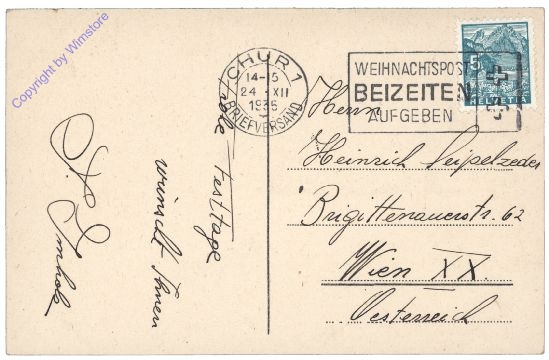 Copyright by Wimstore
CHUR 1
14-15
24. XII
1935
BRIEFVERSAND
WEIHNACHTSPOST
BEIZEITEN
AUFGEBEN
5
HELVETIA
Frohe Festtage
wünscht Ihnen
Imhof
Herrn
Heinrich Seipelzeder
Brigittenauerstr. 62
Wien XX.
Oesterreich